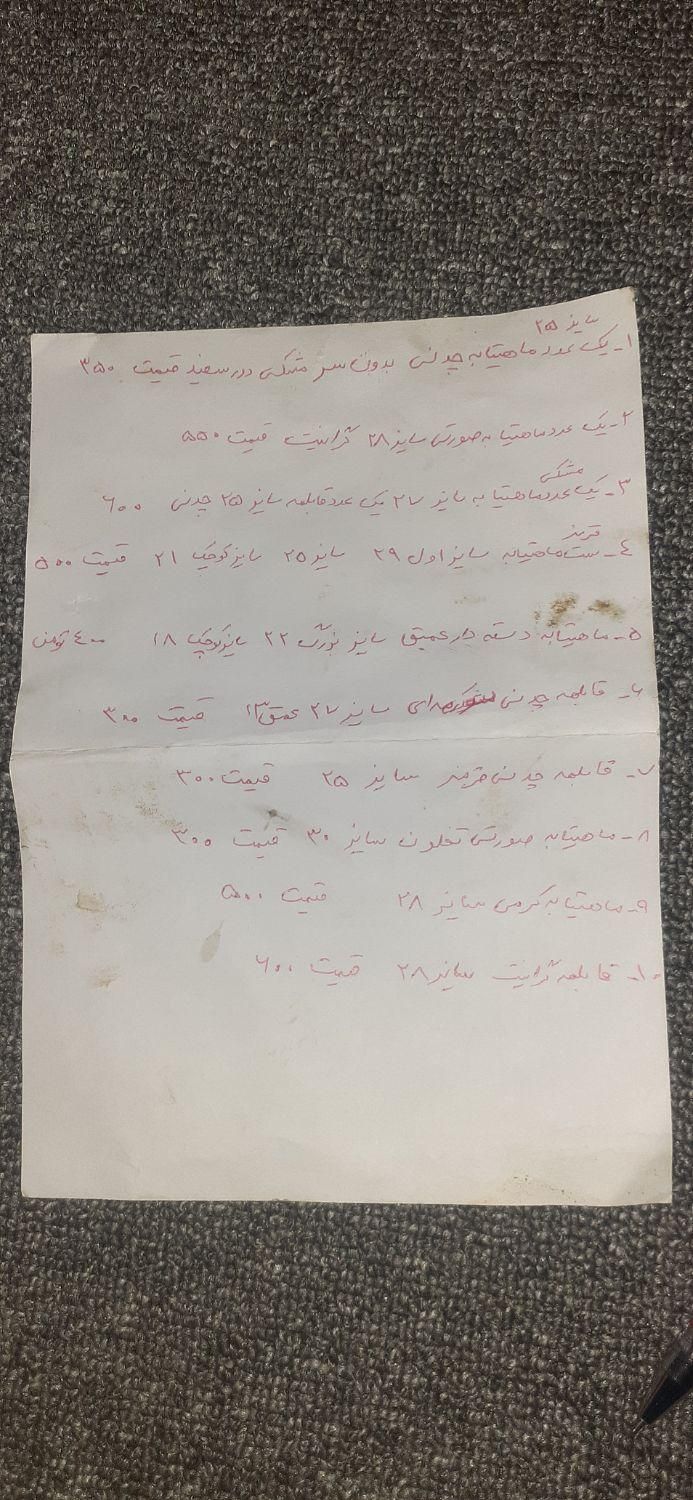 سایز ۲۵
۱- یک عدد ماهیتابه چدنی بدون سر مشکی دور سفید قیمت ۳۵۰
۲- یک عدد ماهیتابه صورتی سایز ۲۸ گرانیت قیمت ۵۵۰
مشکی
۳- یک عدد ماهیتابه سایز ۲۷ یک عدد قابلمه سایز ۲۵ چدنی ۶۰۰
قرمز
۴- ست ماهیتابه سایز اول ۲۹ سایز ۲۵ سایز کوچک ۲۱ قیمت ۵۰۰
۵- ماهیتابه دسته دار عمیق سایز بزرگ ۲۲ سایز کوچک ۱۸ ۴۰۰ تومن
۶- قابلمه چدنی سایز ۲۷ عمق ۱۳ قیمت ۳۰۰
۷- قابلمه چدنی قرمز سایز ۲۵ قیمت ۳۰۰
۸- ماهیتابه صورتی تفلون سایز ۳۰ قیمت ۳۰۰
۹- ماهیتابه کرمی سایز ۲۸ قیمت ۵۰۰
۱۰- قابلمه گرانیت سایز ۲۸ قیمت ۶۰۰